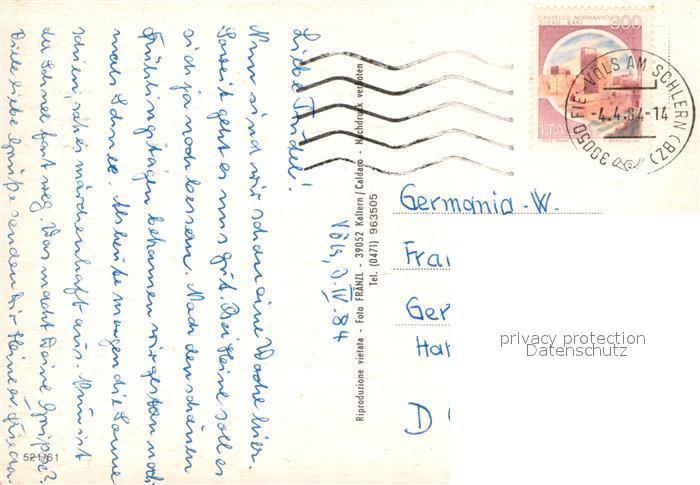 CASTELLO NORMANNO
SVEVO BARI
300
ITA
39050 FIE-VÖLS AM SCHLERN (BZ)
-4.4.84-14
Völs, IV.84
Liebe Trudel!
Nun sind wir schon eine Woche hier.
Soweit geht es uns gut. Bei Heine soll es
sich ja noch bessern. Nach den schönen
Frühlingstagen bekamen wir gestern noch
mals Schnee. Als heute morgen die Sonne
schien, sah es märchenhaft aus. Nun ist
der Schnee fast weg. Was macht Deine Grippe?
Viele liebe Grüße senden Dir Heine u.
Riproduzione vietata - Foto FRÄNZL - 39052 Kaltern/Caldaro - Nachdruck verboten
Tel. (0471) 963505
Germania-W.
Fra
Ger
Ha
D
privacy protection
Datenschutz
521/61